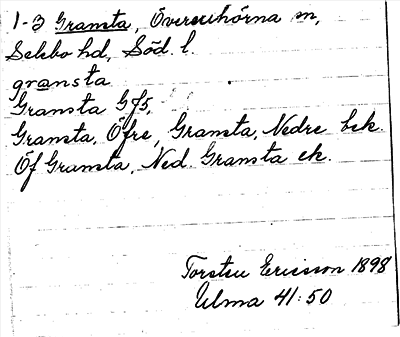 1-3 Gransta, Överenhörna sn,
Selebo hd, Söd. l.
gransta
Gransta GJ5,
Gransta, Öfre, Gransta, Nedre bek.
Öf Gransta, Ned. Gransta ek.
Torsten Ericsson 1898
Ulma 41:50